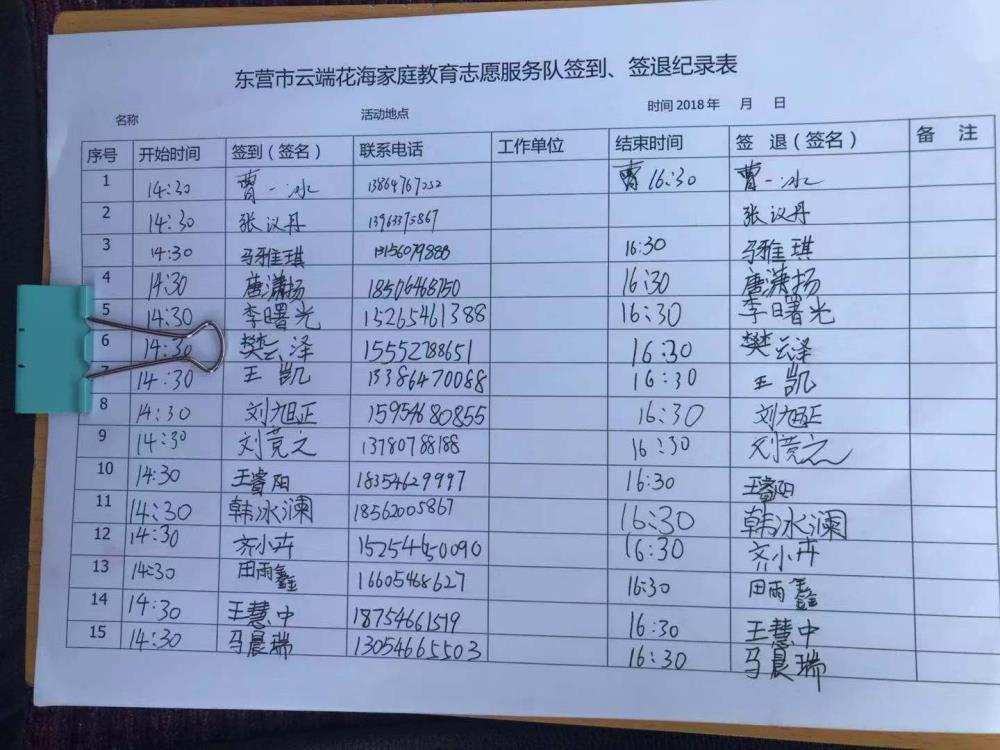 东营市云端花海家庭教育志愿服务队签到、签退纪录表
名称 活动地点 时间 2018 年 月 日
序号 开始时间 签到（签名） 联系电话 工作单位 结束时间 签 退（签名） 备 注
1 14:30 曹一冰 13864767252 曹 16:30 曹一冰
2 14:30 张议丹 13963375867 张议丹
3 14:30 马雅琪 13156079888 16:30 马雅琪
4 14:30 唐潇扬 18506468750 16:30 唐潇扬
5 14:30 李曙光 15265461388 16:30 李曙光
6 14:30 樊云泽 15552788651 16:30 樊云泽
7 14:30 王凯 15386470088 16:30 王凯
8 14:30 刘旭正 15954680855 16:30 刘旭正
9 14:30 刘莞之 13780788188 16:30 刘莞之
10 14:30 王睿阳 18354629997 16:30 王睿阳
11 14:30 韩冰澜 18562005867 16:30 韩冰澜
12 14:30 齐小卉 15254650090 16:30 齐小卉
13 14:30 田雨鑫 16605468627 16:30 田雨鑫
14 14:30 王慧中 18754661519 16:30 王慧中
15 14:30 马晨瑞 13054665503 16:30 马晨瑞